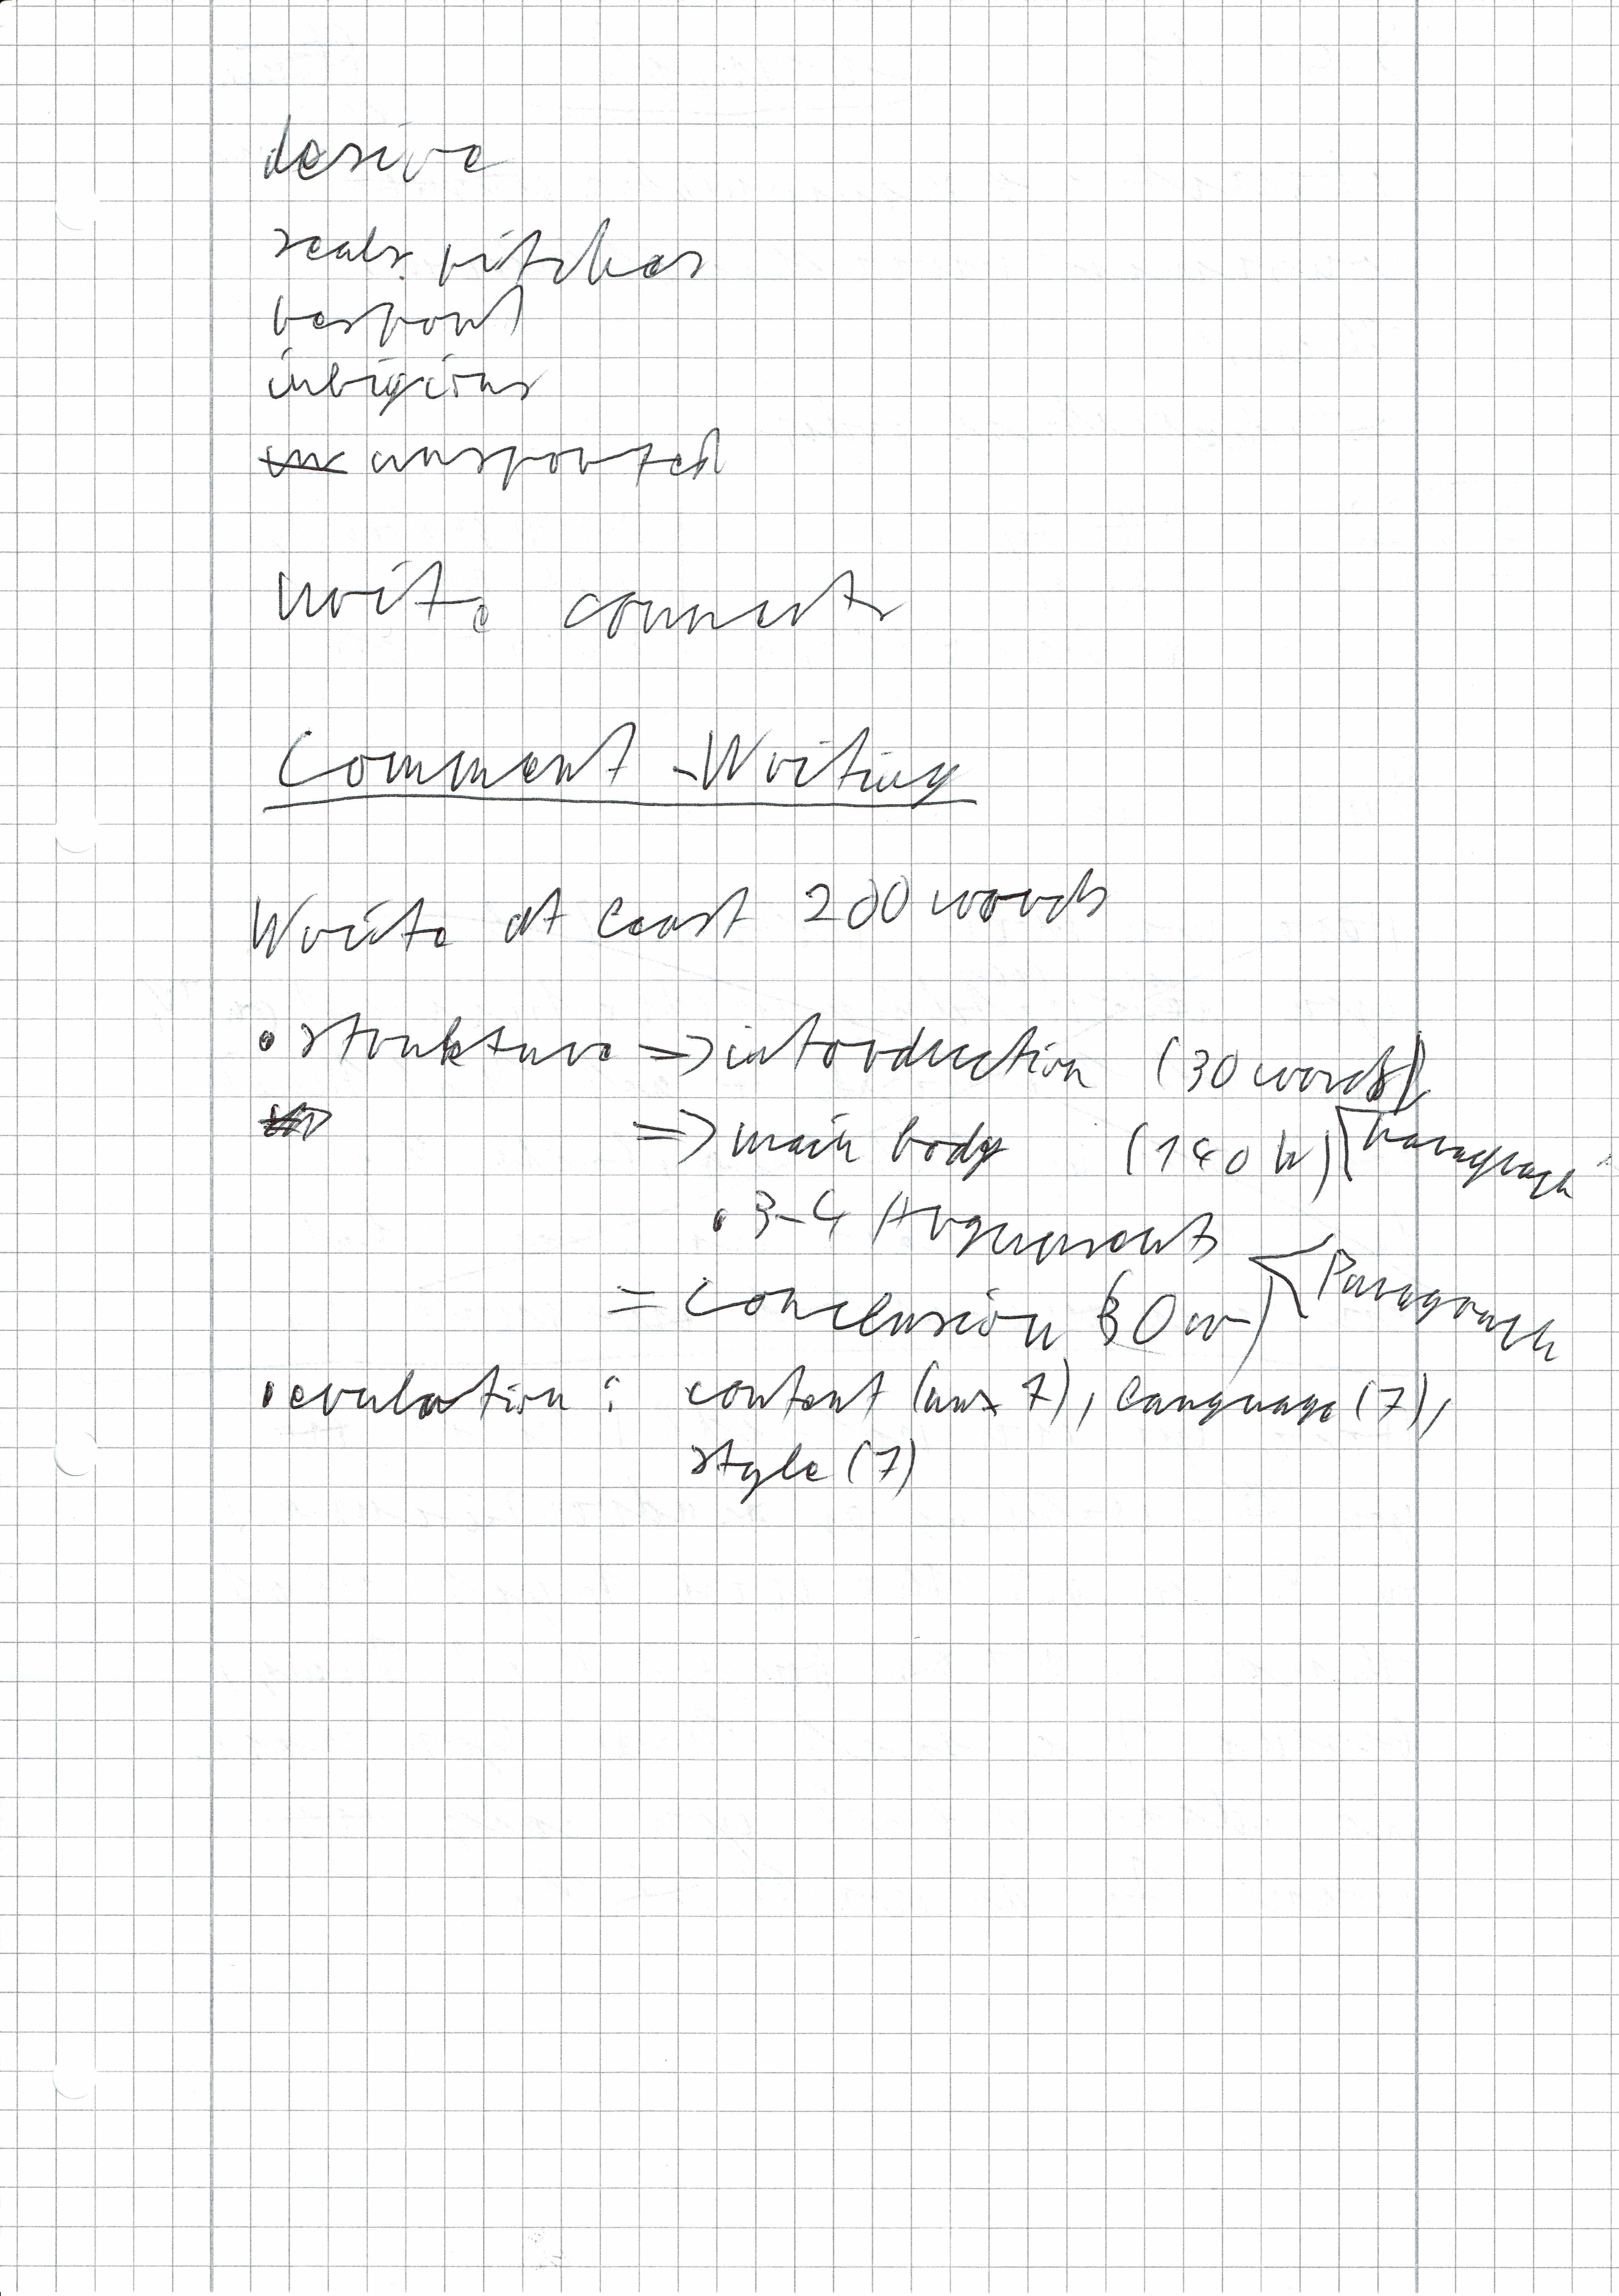 desire
seals pitches
respont
unsported
write comments
Comment-Writing
Write at least 200 words
• strukture => intorduction (30 words)
=> main body (140 w) Paragraph
• 3-4 Arguments
= Conclusion (30 w) Paragraph
• evulation: content (max 7), language (7),
style (7)